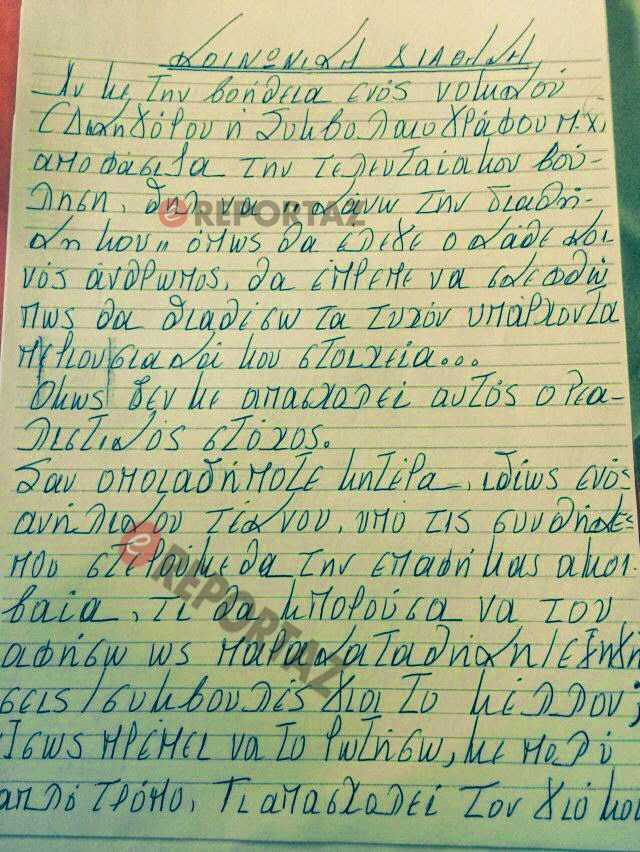 ΚΟΙΝΩΝΙΚΗ ΔΙΑΘΗΚΗ
Αν με την βοήθεια ενός νομικού
(Δικηγόρου ή Συμβολαιογράφου π.χ)
αποφάσιζα την τελευταία μου βού-
ληση, δηλ να "κάνω την διαθή-
κη μου" όπως θα έλεγε ο κάθε κοι-
νός άνθρωπος, θα έπρεπε να σκεφθώ
πως θα διαθέσω τα τυχόν υπάρχοντα
περιουσιακά μου στοιχεία...
Όμως δεν με απασχολεί αυτός ο ρεα-
λιστικός στόχος.
Σαν οποιαδήποτε μητέρα, ιδίως ενός
ανήλικου τέκνου, υπό τις συνθήκες
που στερούμεθα την επαφή μας αμοι-
βαία, τι θα μπορούσα να του
αφήσω ως παρακαταθήκη/εξηγή
σεις/συμβουλές για το μέλλον;
Ίσως πρέπει να το ρωτήσω, με πολύ
απλό τρόπο, Τι απασχολεί τον γιό μου
e REPORTAZ
e REPORTAZ